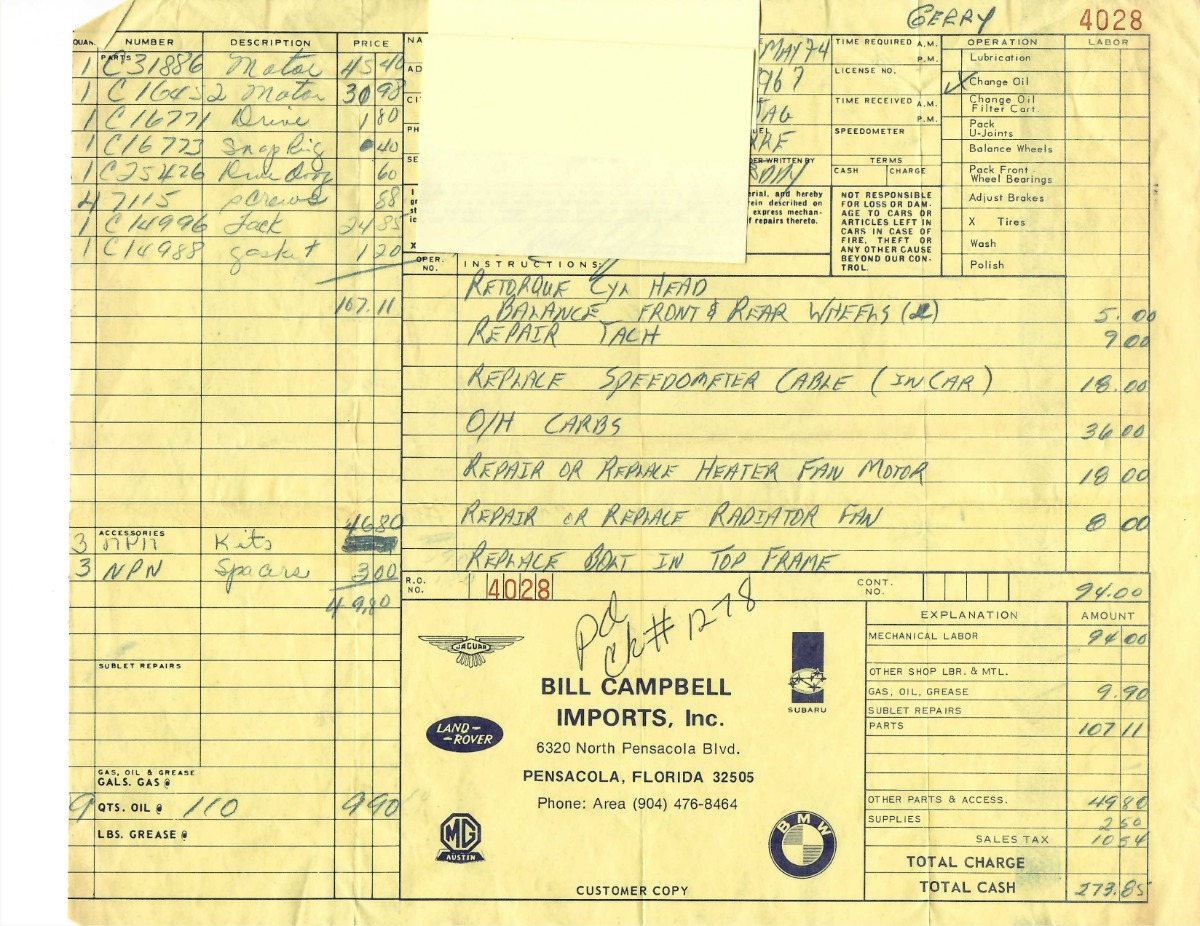 GERRY 4028
QUAN. NUMBER DESCRIPTION PRICE
PARTS
1 C31886 Motor 45 40
1 C16452 Motor 30 98
1 C16771 Drive 1 80
1 C16773 Snap Ring 40
1 C25426 60
4 7115 screws 88
1 C14996 Jack 24 85
1 C14988 gasket 1 20
107.11
46 80
ACCESSORIES
3 NPN Kits
3 NPN Spacers 3 00
49.80
SUBLET REPAIRS
GAS, OIL & GREASE
GALS. GAS @
9 QTS. OIL @ 110 9 90
LBS. GREASE @
NA
AD
CI
PH
SE
X
MAY 74
967
TAG
WRITTEN BY
erial, and hereby
ein described on
express mechan-
f repairs thereto.
TIME REQUIRED A.M.
P.M.
LICENSE NO.
TIME RECEIVED A.M.
P.M.
SPEEDOMETER
TERMS
CASH CHARGE
NOT RESPONSIBLE
FOR LOSS OR DAM-
AGE TO CARS OR
ARTICLES LEFT IN
CARS IN CASE OF
FIRE, THEFT OR
ANY OTHER CAUSE
BEYOND OUR CON-
TROL.
OPERATION LABOR
Lubrication
Change Oil
Change Oil
Filter Cart.
Pack
U-Joints
Balance Wheels
Pack Front
Wheel Bearings
Adjust Brakes
X Tires
Wash
Polish
OPER. NO. INSTRUCTIONS:
RETORQUE CYL HEAD
BALANCE FRONT & REAR WHEELS (2) 5.00
REPAIR TACH 9 00
REPLACE SPEEDOMETER CABLE (IN CAR) 18.00
O/H CARBS 36 00
REPAIR OR REPLACE HEATER FAN MOTOR 18 00
REPAIR OR REPLACE RADIATOR FAN 8 00
REPLACE BOLT IN TOP FRAME
R.O. NO. 4028 CONT. NO. 94.00
Pd
ck# 1278
JAGUAR
SUBARU
LAND-ROVER
MG
AUSTIN
BMW
BILL CAMPBELL
IMPORTS, Inc.
6320 North Pensacola Blvd.
PENSACOLA, FLORIDA 32505
Phone: Area (904) 476-8464
CUSTOMER COPY
EXPLANATION AMOUNT
MECHANICAL LABOR 94 00
OTHER SHOP LBR. & MTL.
GAS, OIL, GREASE 9.90
SUBLET REPAIRS
PARTS 107 11
OTHER PARTS & ACCESS. 49 80
SUPPLIES 2 50
SALES TAX 10 54
TOTAL CHARGE
TOTAL CASH 273.85